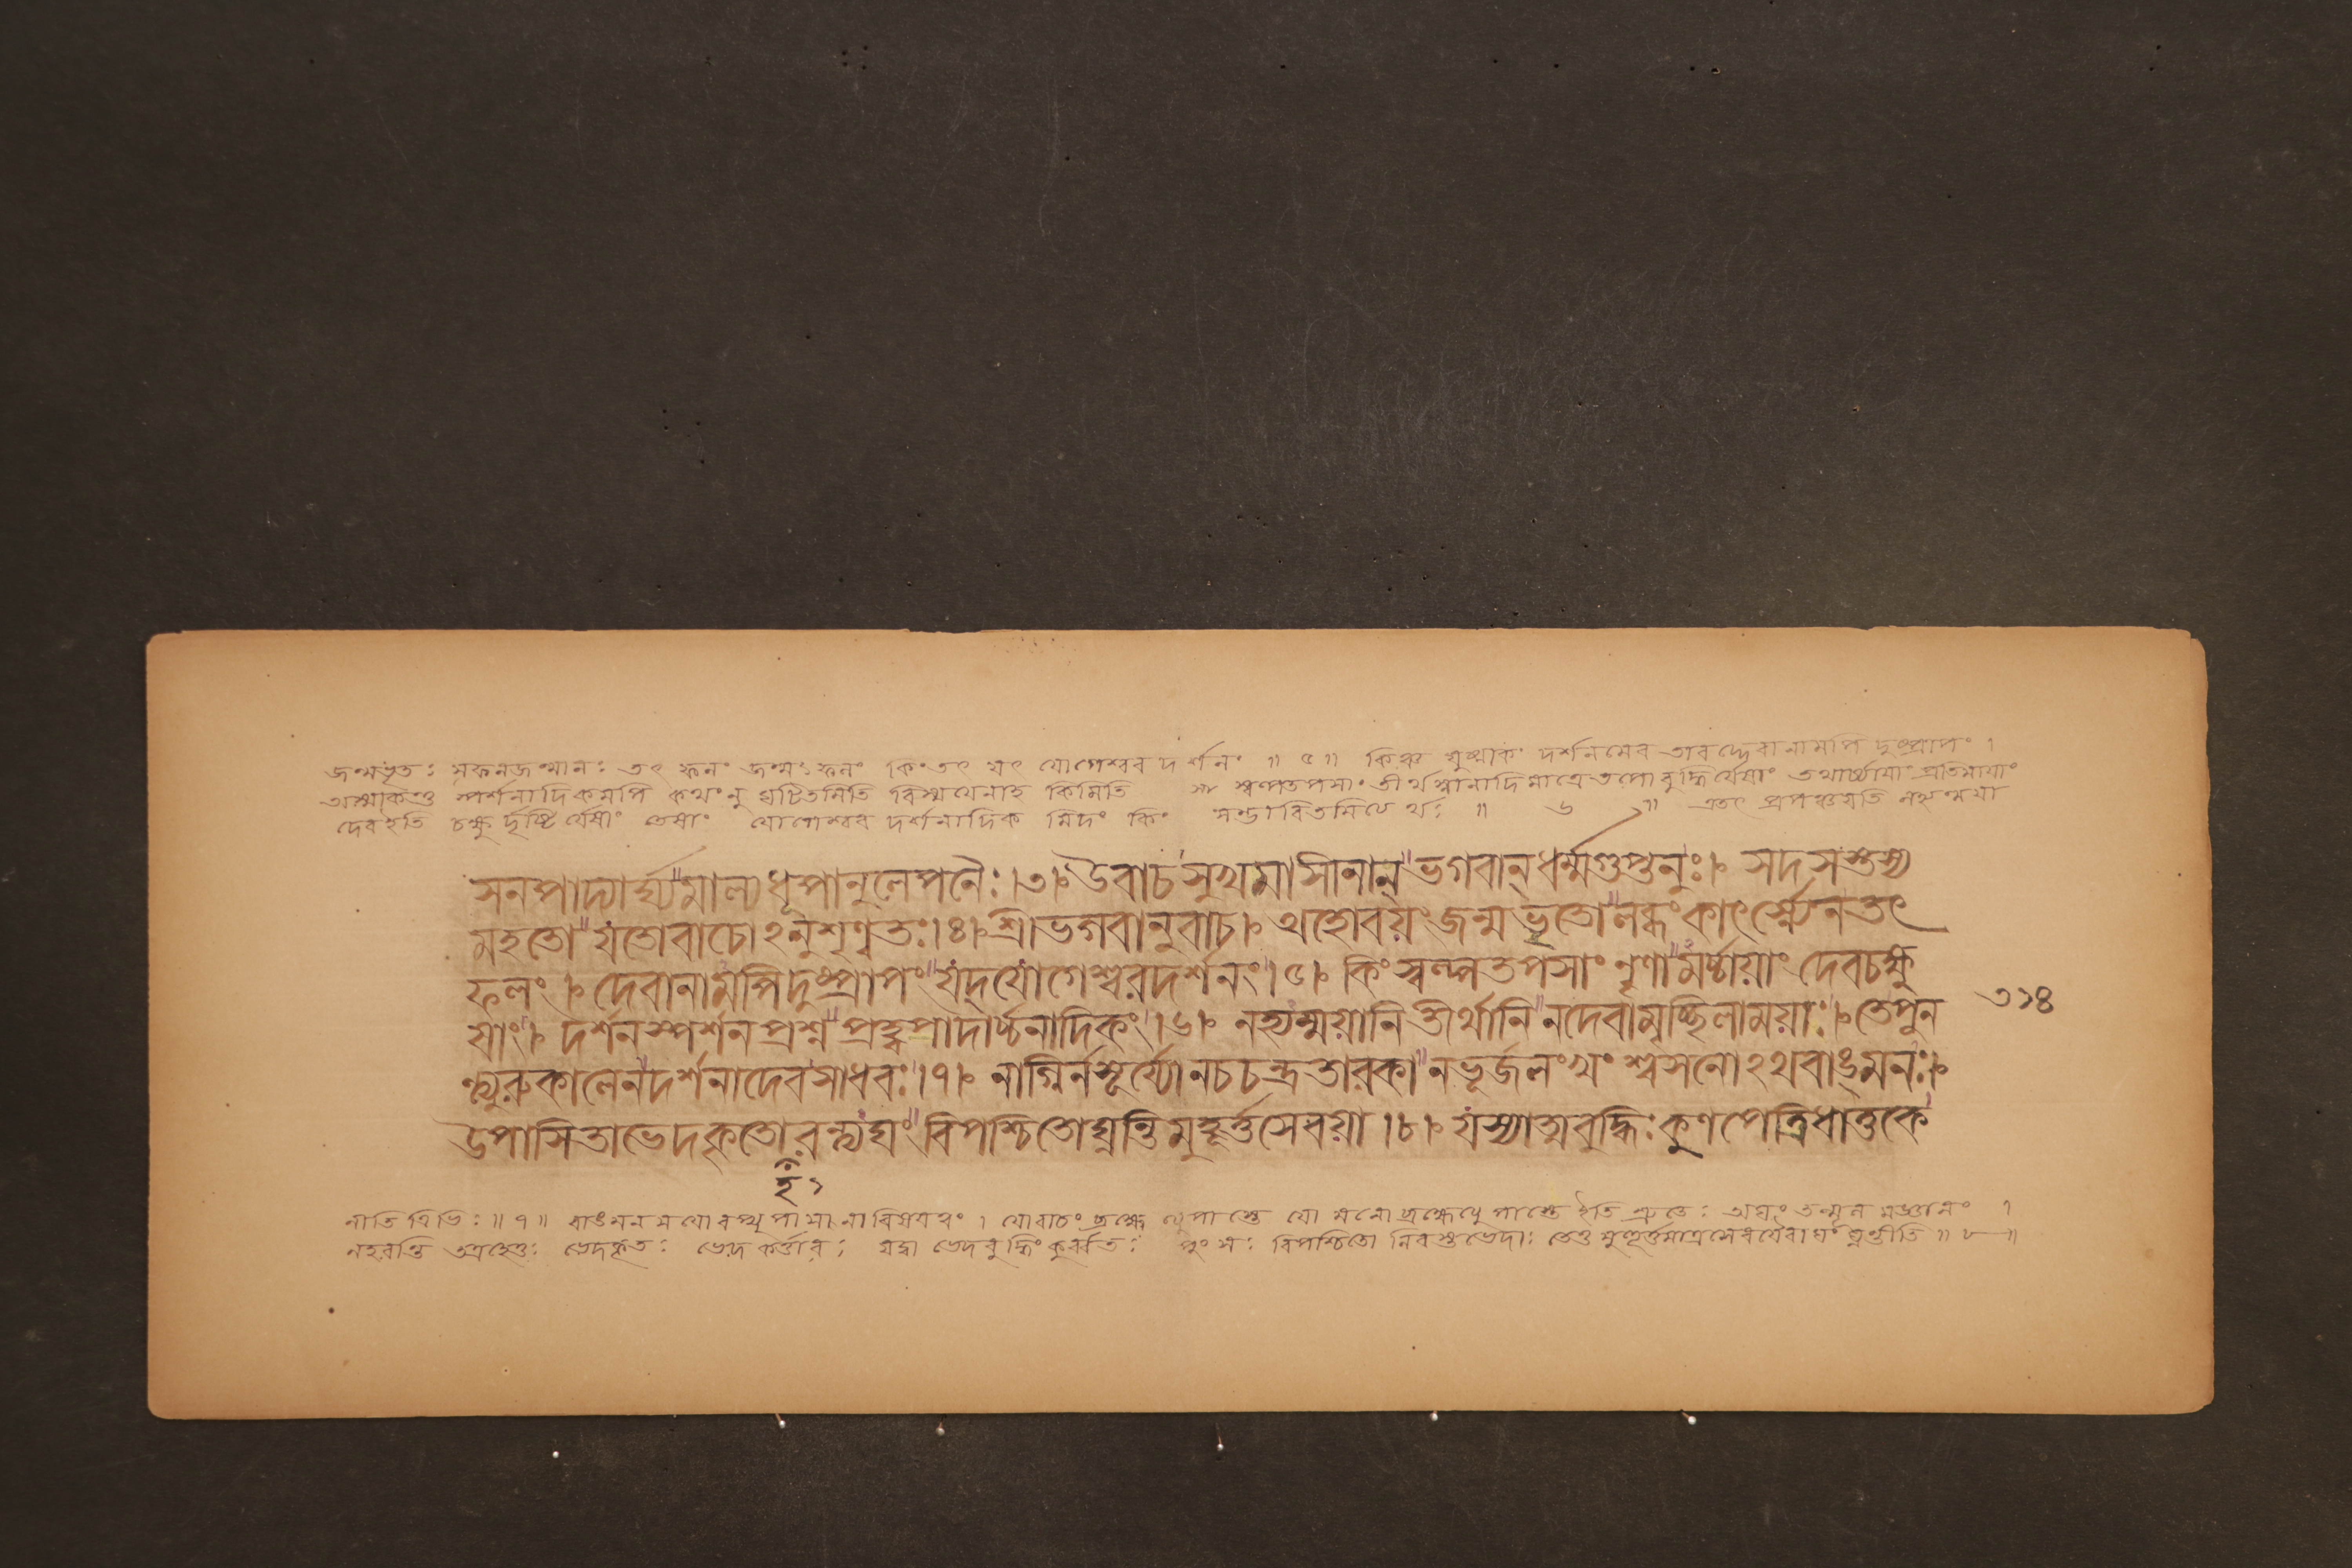 জন্মভৃতঃ সফলজন্মানঃ তৎ ফলং জন্মঃ ফলং কিং তৎ যৎ যোগেশ্বর দর্শনং ॥ ৫ ॥ কিঞ্চ যুষ্মাকং দর্শনমেব তাবদ্দেবানামপি দুষ্প্রাপং ।
অস্মাকন্তু স্পর্শনাদিকমপি কথং নু ঘটিতমিতি বিস্ময়েনাহ কিমিতি স্বল্পতপসাং তীর্থস্নানাদিমাত্রে তপোবুদ্ধির্যেষাং তথার্চ্চায়াং প্রতিমায়াং
দেব ইতি চক্ষুর্দৃষ্টির্যেষাং তেষাং যোগেশ্বর দর্শনাদিক মিদং কিং সম্ভাবিতমিত্যর্থঃ ॥ ৬ ॥ এতৎ প্রপঞ্চয়তি নহ্যম্ময়া
সনপাদ্যার্ঘ্যমাল্যধূপানুলেপনৈঃ ।৩। উবাচ সুখমাসীনান্ ভগবান্ ধর্ম্মগুপ্তনুঃ । সদসস্তস্য
মহতো যতোবাচোঽনুশৃণ্বতঃ ।৪। শ্রীভগবানুবাচ । অহোবয়ং জন্মভৃতো লব্ধং কাৎর্স্ন্যেনতৎ
ফলং । দেবানামপি দুষ্প্রাপং যদ্ যোগেশ্বরদর্শনং ।৫। কিং স্বল্পতপসাং নৃণামর্চ্চায়াং দেবচক্ষু
ষাং । দর্শনস্পর্শনপ্রশ্ন প্রহ্বপাদার্চ্চনাদিকং ।৬। নহ্যম্ময়ানি তীর্থানি নদেবামৃচ্ছিলাময়াঃ । তেপুন
ন্ত্যুরুকালেন দর্শনাদেবসাধবঃ ।৭। নাগ্নির্নসূর্য্যোনচচন্দ্রতারকা নভূর্জলংখং শ্বসনোঽথবাঙ্মনঃ ।
উপাসিতাভেদকৃতোরন্ত্যঘং বিপশ্চিতোঘ্নন্তি মুহূর্ত্তসেবয়া ।৮। যস্যাত্মবুদ্ধিঃ কুণপেত্রিধাতুকে
৩১৪
হ ১
নীতি ত্রিভিঃ ॥ ৭ ॥ বাঙমনসয়োরপ্যুপাসনাবিষয়ত্বং । যোবাচং ব্রহ্মেত্যুপাস্তে যো মনোব্রহ্মেত্যুপাস্তে ইতি শ্রুতেঃ অঘং তন্মূলমজ্ঞানং ।
নহরন্তি তত্রহেতুঃ ভেদকৃতঃ ভেদকর্ত্তারঃ যদ্বা ভেদবুদ্ধিং কুর্ব্বতঃ পুংসঃ বিপশ্চিতো নিরস্তভেদাঃ তেতু মুহূর্ত্তমাত্রসেবয়ৈবাঘং ঘ্নন্তীতি ॥ ৮ ॥